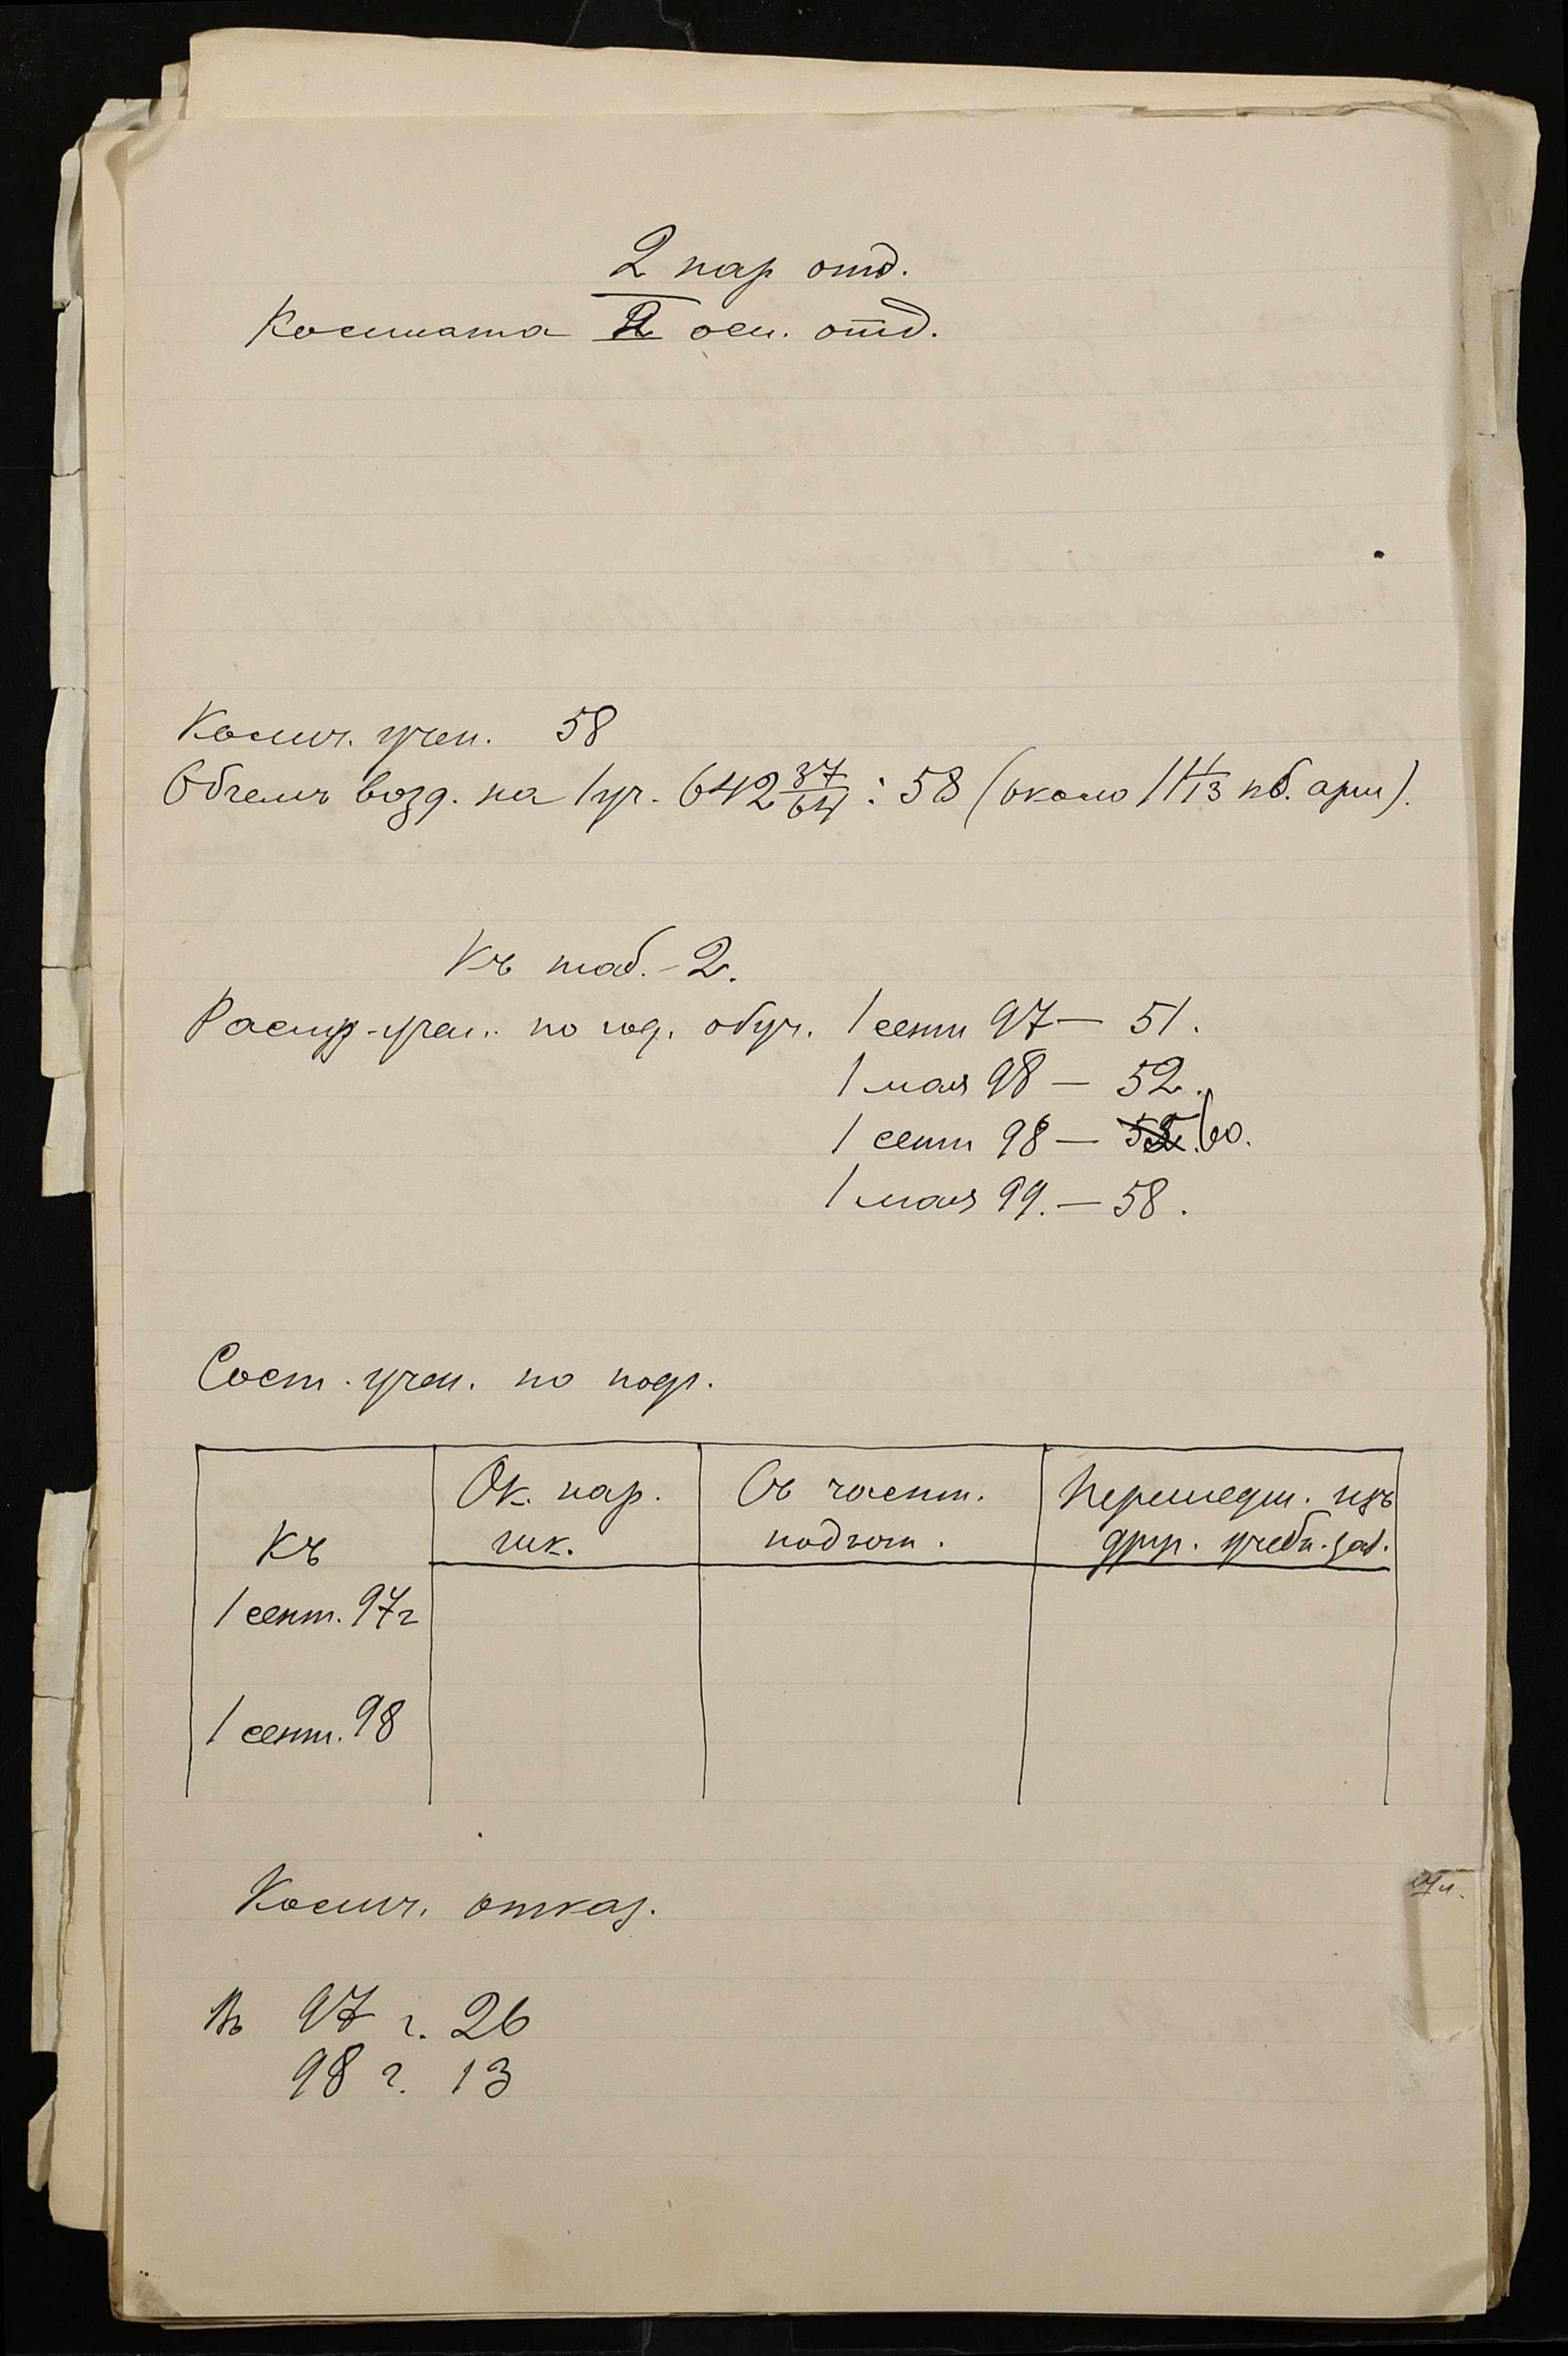 2 пар отд.
Комната II осн. отд.
Колич. учен. 58
Объемъ возд. на 1 уч. 642 37/64 : 58 (около 11 1/13 кб. арш).
Къ таб. - 2.
Распр. учен. по год. обуч. 1 сент 97 — 51.
1 мая 98 — 52.
1 сент 98 — 60.
1 мая 99. — 58.
Сост. учен. по подг.
Къ
Ок. нар.
шк.
Съ части.
подгот.
Перешедш. изъ
друг. учебн. зав.
1 сент. 97 г
1 сент. 98
Колич. отказ.
Въ 97 г. 26
98 г. 13